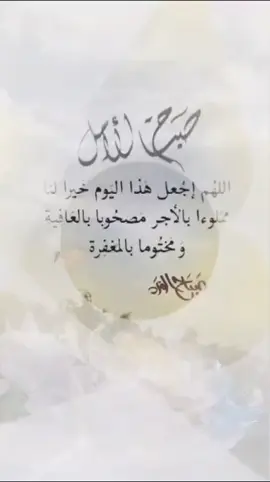 صباح الأمل
اللهم إجعل هذا اليوم خيرا لنا
مملوءا بالأجر مصحوبا بالعافية
ومختوما بالمغفرة
صباح الورد